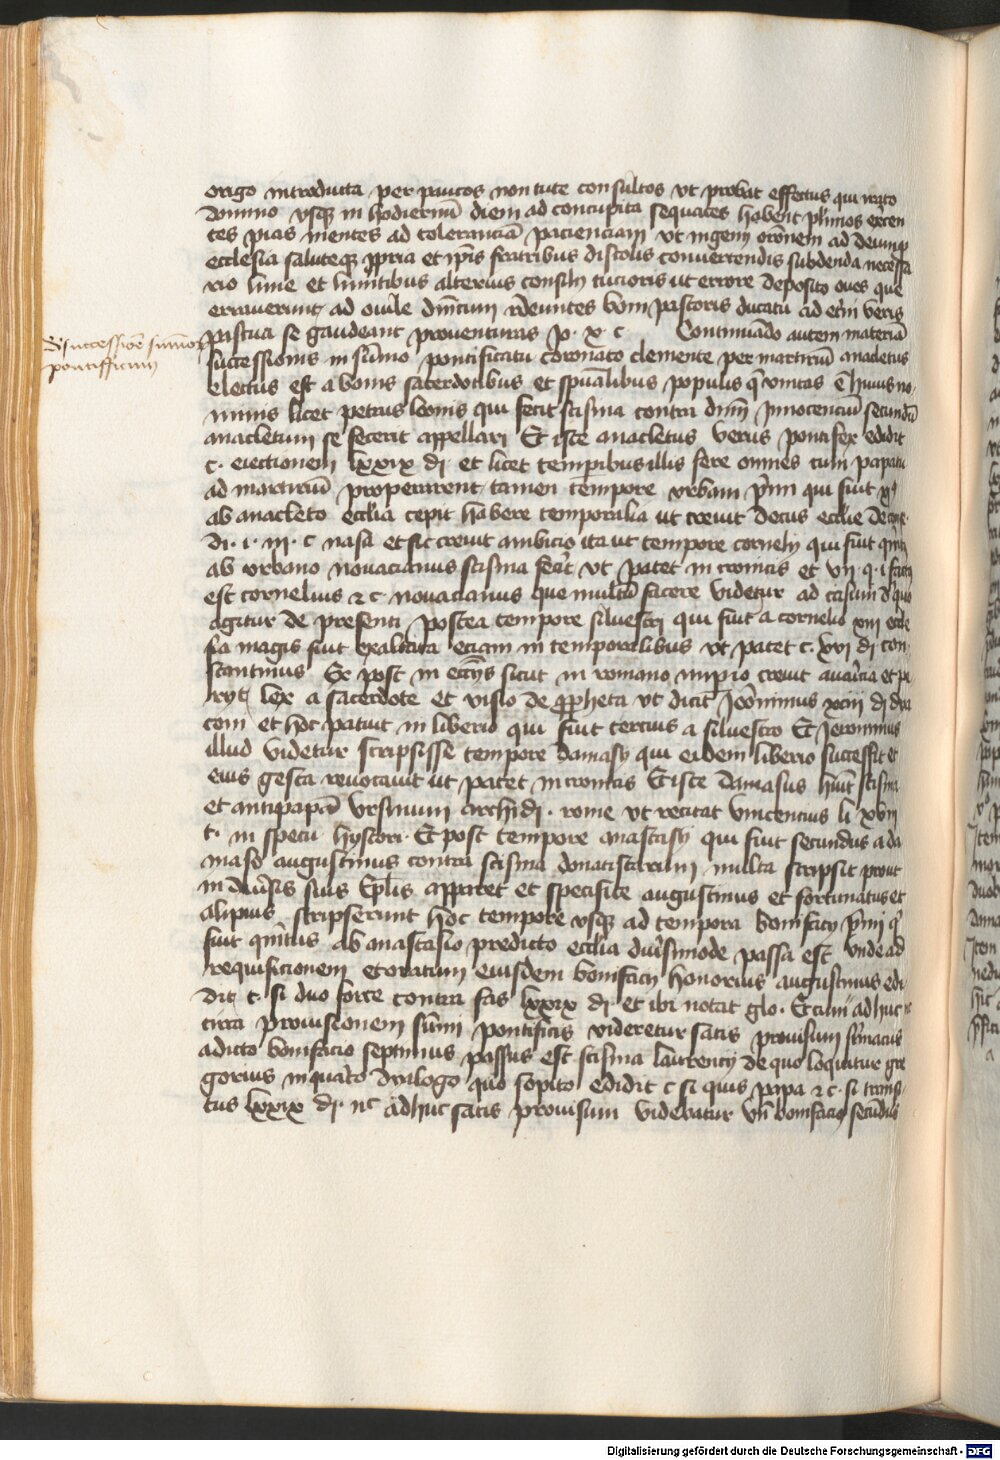 origo introducta per paucos non tute consultos ut probat effectus qui
domino usq in hodiernu diem ad concupita sequaces habent plimos exten
tes pias mentes ad tolerancia pacienciam ut ingem oronem ad
ecclesia saluteq ppria et ipis fratribus discolis convertendis subdenda necessa
rio sime et limitibus alterius consily tucioris ut errore deposito oves que
erraverunt ad ovile dnicum redeuntes boni pastoris ducatu ad veris
pascua se gaudeant proventuras p x c Continuado autem materia
De successioe sumor
pontifficum
successionis in sumo pontificatu coronato clemente per martiriu anacletus
electus est a bonis sacerdotibus et spualibus populis q unitas e huius no
minis licet petrus leonis qui fecit scisma contra dnm Innocenciu secundu
anacletum se fecerit appellari Et iste anacletus verus pontifex edidit
c. eiectionem lxxix di et licet temporibus illis fere omnes cum papatu
ad martiriu properarent tamen tempore urbani primi qui fuit
ab anacleto ecclia cepit habere temporalia ut crevit decus ecclie
di. i. m. c nasa et sic crevit ambicio ita ut tempore cornely qui fuit
ab urbano novacianus scisma fecit ut patet in cronicis et vii q i factus
est cornelius et c novacianus que multu facere videtur ad casum d quo
agitur de presenti postea tempore silvestri qui fuit a cornelio xiii eccle
sia magis fuit exaltata eciam in temporalibus ut patet c. xvi di con
stantinus Ex post in ecciis sicut in romano impio crevit avaricia et pe
ryt lex a sacerdote et visio de propheta ut dicit Jeronimus xciii di
com et hoc patuit in liberio qui fuit tercius a silvestro Et Jeronimus
illud videtur scripsisse tempore damasy qui eidem liberio successit et
eius gesta revocavit ut patet in cronicis Et iste damasus huit scisma
et antipapa Ursinum archidi. rome ut recitat vincencius li xvii
t. in specu hystori. Et post tempore anastasy qui fuit secundus a da
maso augustinus contra scisma donatistarum multa scripsit prout
in diversis suis Eplis apparet et specifice augustinus et fortunatus et
alipius scripserunt hoc tempore usq ad tempora bonifacy primi q
fuit quintus ab anastasio predicto ecclia diversimode passa est unde ad
requisicionem et oratum eiusdem bonifacy honorius augustinus edi
dit c. si duo forte contra fas lxxix di et ibi notat glo. Et cum adhuc
circa provisionem summi pontificis videretur satis provisum
adicto bonifacio septimus passus est scisma laurency de quo loquitur gre
gorius in quarto dyalogo quo sopito edidit c si quis papa et c. si transi
tus lxxix di. nec adhuc satis provisum videbatur un bonifacius secundus
Digitalisierung gefördert durch die Deutsche Forschungsgemeinschaft - DFG